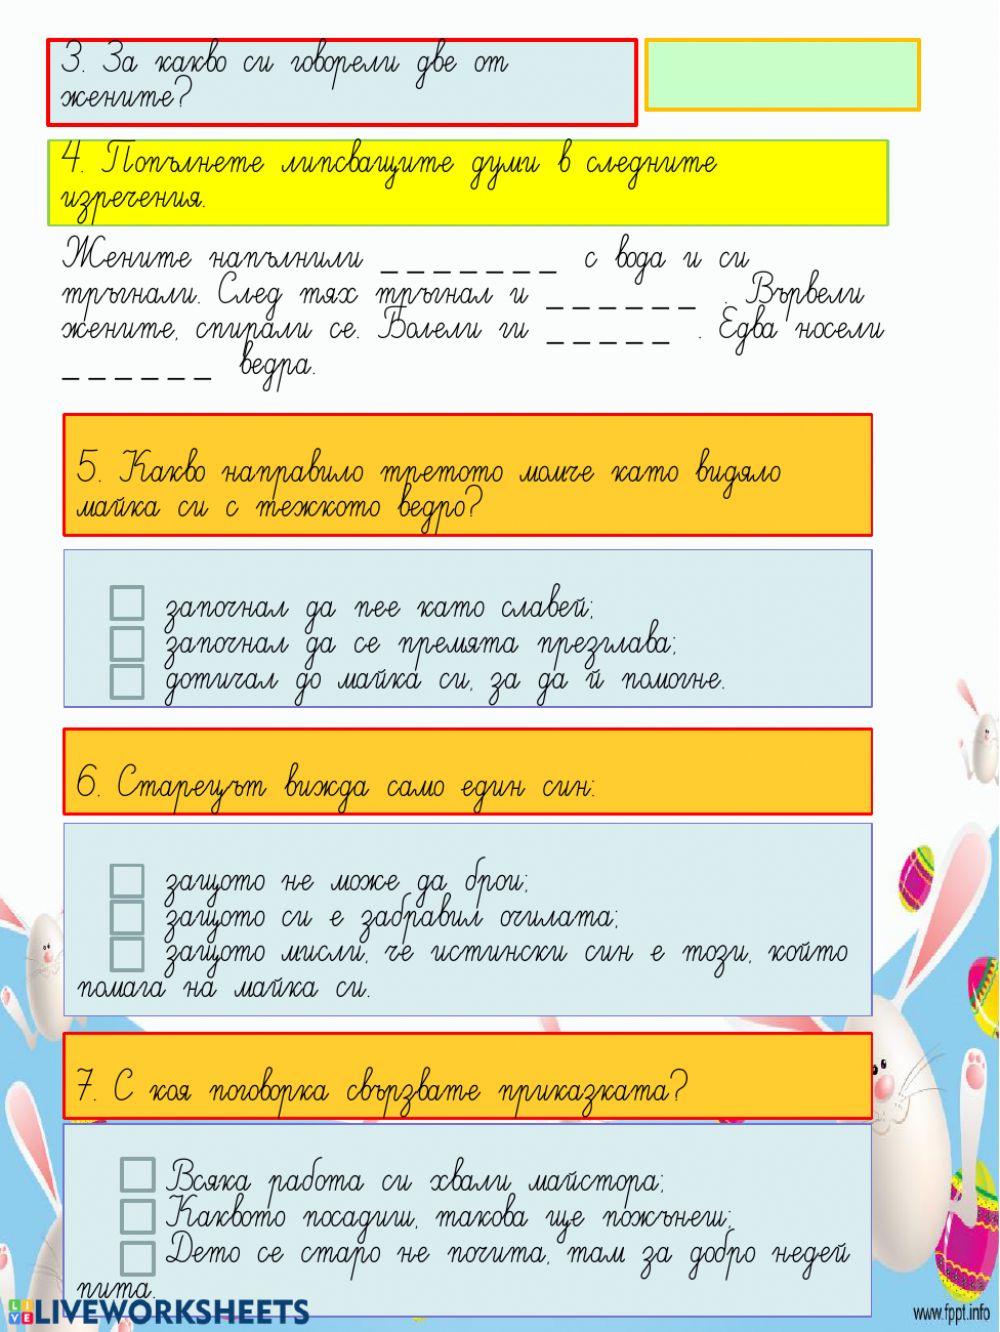 3. За какво си говорели две от
жените?
4. Попълнете липсващите думи в следните
изречения.
Жените напълнили _ _ _ _ _ _ _ с вода и си
тръгнали. След тях тръгнал и _ _ _ _ _ _ . Вървели
жените, спирали се. Болели ги _ _ _ _ _ . Едва носели
_ _ _ _ _ _ ведра.
5. Какво направило третото момче като видяло
майка си с тежкото ведро?
започнал да пее като славей;
започнал да се премята презглава;
дотичал до майка си, за да й помогне.
6. Старецът вижда само един син:
защото не може да брои;
защото си е забравил очилата;
защото мисли, че истински син е този, който
помага на майка си.
7. С коя поговорка свързвате приказката?
Всяка работа си хвали майстора;
Каквото посадиш, такова ще пожънеш;
Дето се старо не почита, там за добро недей
пита.
LIVE LIVEWORKSHEETS
www.fppt.info